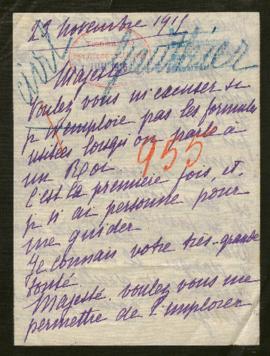 29 Novembre 191
civil
Gauthier
Majesté
Voulez vous m'excuser se
je n'emploie pas les formules
usitées lorsqu'on parle à
un Roi
955
C'est la première fois, et
je n'ai personne pour
me guider
Je connais votre très-grande
bonté
Majesté voulez vous me
permettre de l'implorer